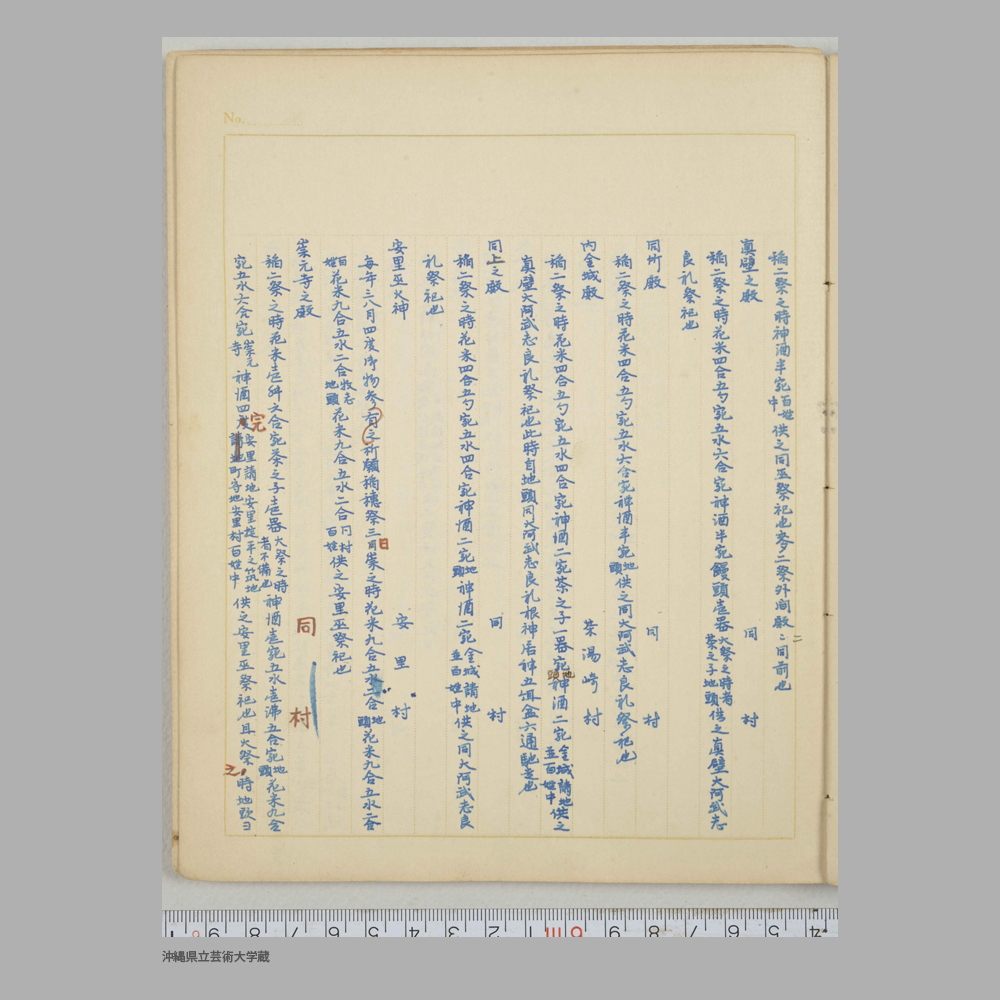 No.
稲二祭之時神酒半宛百姓中供之同巫祭祀也麥二祭外間殿ニ同前也
真壁之殿 同村
稲二祭之時花米四合五勺宛五水六合宛神酒半宛饅頭壱器火祭之時者茶之子地頭供之真壁大阿武志
良礼祭祀也
同所殿 同村
稲二祭之時花米四合五勺宛五水六合宛神酒半宛地頭供之同大阿武志良礼祭祀也
内金城殿 茶湯崎村
稲二祭之時花米四合五勺宛五水四合宛神酒二宛茶之子一器宛地頭神酒二宛金城請地並百姓中供之
真壁大阿武志良礼祭祀也此時自地頭同大阿武志良礼根神居神五姐盆六通馳走也
同上之殿 同村
稲二祭之時花米四合五勺宛五水四合宛神酒二宛地頭神酒二宛金城請地並百姓中供之同大阿武志良
礼祭祀也
安里巫火神 安里村
毎年三八月四度御物参有之祈願稲穂祭三日崇之時花米九合五水二合地頭花米九合五水二合
百姓花米九合五水二合牧志地頭花米九合五水二合同村百姓供之安里巫祭祀也
崇元寺之殿 同村
稲二祭之時花米壱舛六合宛茶之子壱器火祭之時者不備也神酒壱宛五水壱沸五合宛地頭花米九合
宛五水六合宛崇元寺神酒四宛安里請地安里掟平之筑地請地町寺地安里村百姓中供之安里巫祭祀也且火祭之時地頭ヨ
沖縄県立芸術大学蔵